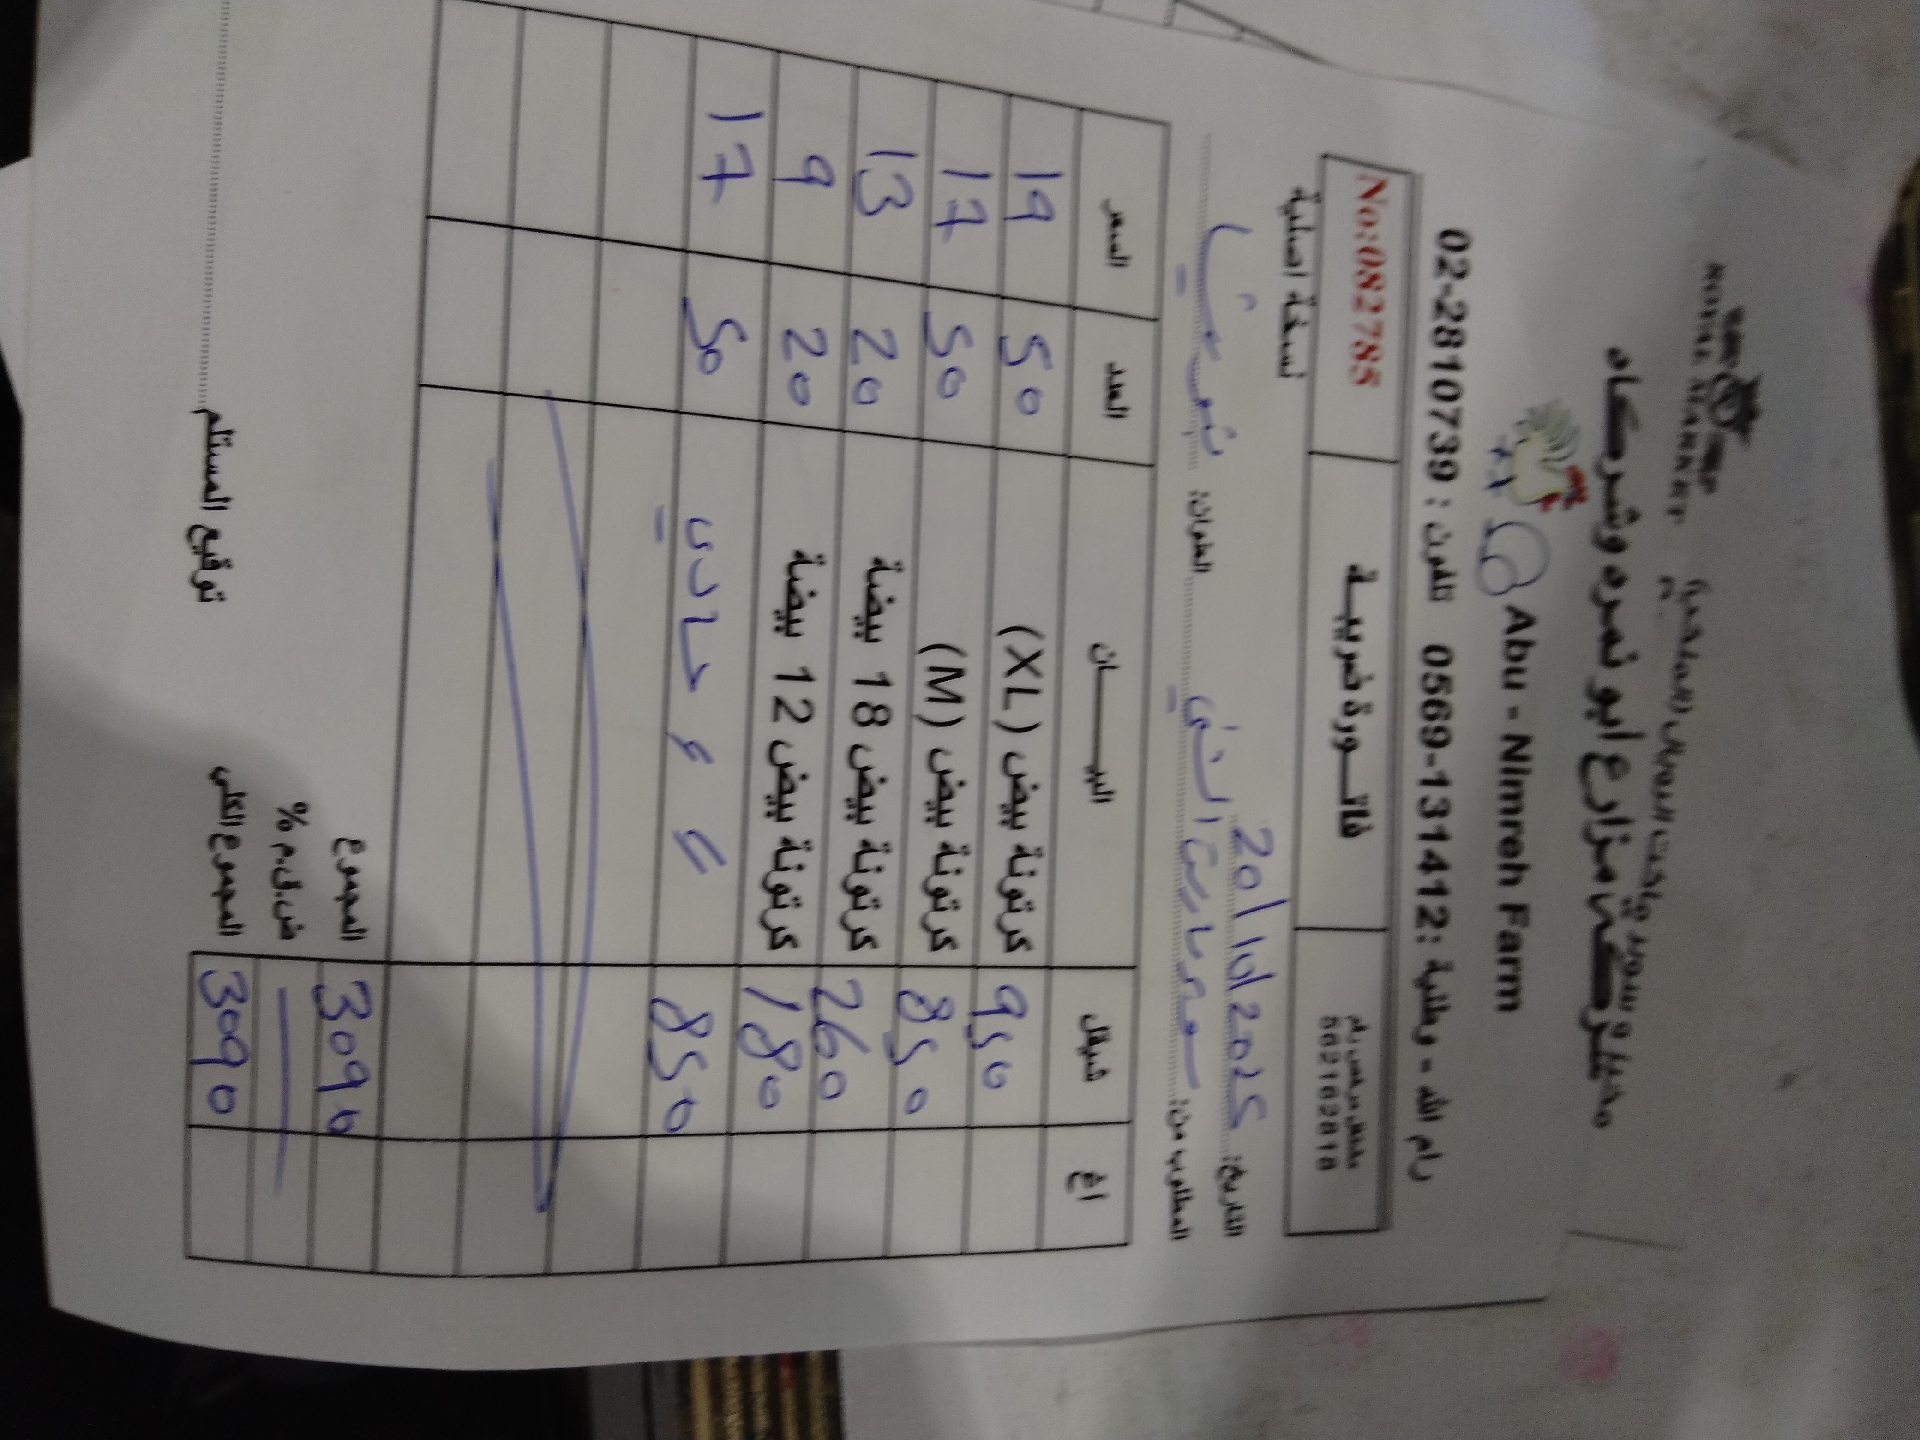 شركة مزارع ابو نمره وشركاه
Abu - Nimreh Farm
رام الله - وطنية: 0569-131412 تلفون : 02-2810739
مشتغل مرخص رقم 562162818
فاتـورة ضريبـة
No:082785
نسخة اصلية
التاريخ: 20/10/2025
المطلوب من: سوبرماركت العنوان:
اغ شيقل البيــــان العدد السعر
950 كرتونة بيض (XL) 50 19
850 كرتونة بيض (M) 50 17
260 كرتونة بيض 18 بيضة 20 13
180 كرتونة بيض 12 بيضة 20 9
850 50 17
المجموع 3090
ض.ق.م %
المجموع الكلي 3090
توقيع المستلم